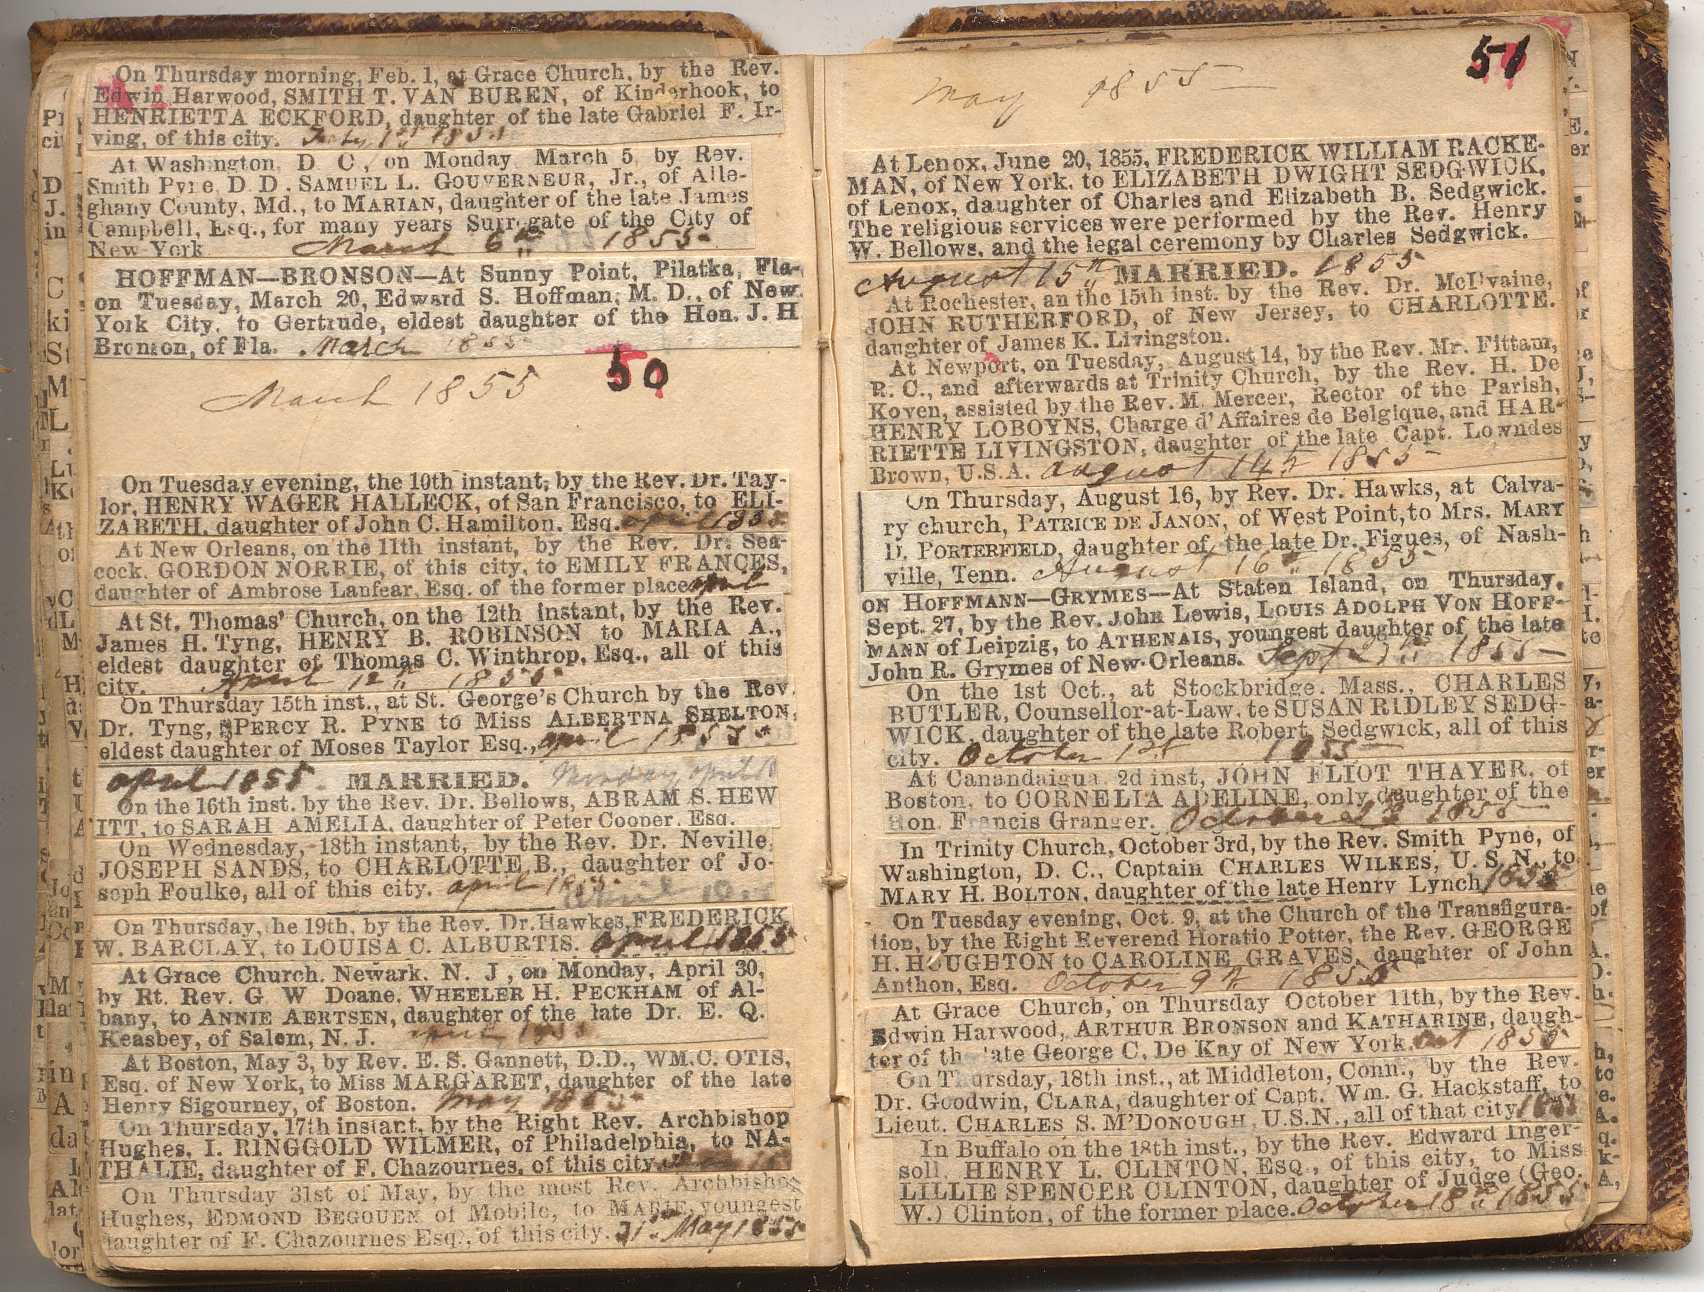 On Thursday morning, Feb. 1, at Grace Church, by the Rev.
Edwin Harwood, SMITH T. VAN BUREN, of Kinderhook, to
HENRIETTA ECKFORD, daughter of the late Gabriel F. Ir-
ving, of this city.
At Washington, D. C., on Monday, March 5, by Rev.
Smith Pyne, D. D., SAMUEL L. GOUVERNEUR, Jr., of Alle-
ghany County, Md., to MARIAN, daughter of the late James
Campbell, Esq., for many years Surrogate of the City of
New York March 6th 1855
HOFFMAN—BRONSON—At Sunny Point, Pilatka, Fla.
on Tuesday, March 20, Edward S. Hoffman, M. D., of New
York City, to Gertrude, eldest daughter of the Hon. J. H
Bronson, of Fla. March 1855
50
March 1855
On Tuesday evening, the 10th instant, by the Rev. Dr. Tay-
lor, HENRY WAGER HALLECK, of San Francisco, to ELI-
ZABETH, daughter of John C. Hamilton, Esq. april 1855
At New Orleans, on the 11th instant, by the Rev. Dr. Sea-
cock, GORDON NORRIE, of this city, to EMILY FRANCES,
daughter of Ambrose Lanfear, Esq. of the former place april
At St. Thomas' Church, on the 12th instant, by the Rev.
James H. Tyng, HENRY B. ROBINSON to MARIA A.,
eldest daughter of Thomas C. Winthrop, Esq., all of this
city. April 12th 1855
On Thursday 15th inst., at St. George's Church by the Rev.
Dr. Tyng, PERCY R. PYNE to Miss ALBERTNA SHELTON,
eldest daughter of Moses Taylor Esq., april 1855
april 1855 MARRIED. Monday april 16
On the 16th inst. by the Rev. Dr. Bellows, ABRAM S. HEW
ITT, to SARAH AMELIA, daughter of Peter Cooper, Esq.
On Wednesday, 18th instant, by the Rev. Dr. Neville,
JOSEPH SANDS, to CHARLOTTE B., daughter of Jo-
seph Foulke, all of this city. april
On Thursday, he 19th, by the Rev. Dr. Hawkes, FREDERICK
W. BARCLAY, to LOUISA C. ALBURTIS. april 1855
At Grace Church, Newark, N. J., on Monday, April 30,
by Rt. Rev. G. W Doane, WHEELER H. PECKHAM of Al-
bany, to ANNIE AERTSEN, daughter of the late Dr. E. Q.
Keasbey, of Salem, N. J. april 1855
At Boston, May 3, by Rev. E. S. Gannett, D.D., WM. C. OTIS,
Esq. of New York, to Miss MARGARET, daughter of the late
Henry Sigourney, of Boston. May 1855
On Thursday, 17th instant, by the Right Rev. Archbishop
Hughes, I. RINGGOLD WILMER, of Philadelphia, to NA-
THALIE, daughter of F. Chazournes, of this city
On Thursday 31st of May, by the most Rev. Archbishop
Hughes, EDMOND BEGOUEN of Mobile, to MARIE, youngest
daughter of F. Chazournes Esq., of this city. 31st May 1855
51
May 1855
At Lenox, June 20, 1855, FREDERICK WILLIAM RACKE-
MAN, of New York, to ELIZABETH DWIGHT SEDGWICK,
of Lenox, daughter of Charles and Elizabeth B. Sedgwick.
The religious services were performed by the Rev. Henry
W. Bellows, and the legal ceremony by Charles Sedgwick.
August 15th MARRIED. 1855
At Rochester, on the 15th inst. by the Rev. Dr. McIlvaine,
JOHN RUTHERFORD, of New Jersey, to CHARLOTTE.
daughter of James K. Livingston.
At Newport, on Tuesday, August 14, by the Rev. Mr. Fittam,
R. C., and afterwards at Trinity Church, by the Rev. H. De
Koven, assisted by the Rev. M. Mercer, Rector of the Parish,
HENRY LOBOYNS, Charge d'Affaires de Belgique, and HAR-
RIETTE LIVINGSTON, daughter of the late Capt. Lowndes
Brown, U.S.A. august 14th 1855
On Thursday, August 16, by Rev. Dr. Hawks, at Calva-
ry church, PATRICE DE JANON, of West Point, to Mrs. MARY
D. PORTERFIELD, daughter of the late Dr. Figues, of Nash-
ville, Tenn. August 16th 1855
ON HOFFMANN—GRYMES—At Staten Island, on Thursday,
Sept. 27, by the Rev. John Lewis, LOUIS ADOLPH VON HOFF-
MANN of Leipzig, to ATHENAIS, youngest daughter of the late
John R. Grymes of New-Orleans. Sept 27th 1855
On the 1st Oct., at Stockbridge, Mass., CHARLES
BUTLER, Counsellor-at-Law, to SUSAN RIDLEY SEDG-
WICK, daughter of the late Robert Sedgwick, all of this
city. October 1st 1855
At Canandaigua, 2d inst, JOHN ELIOT THAYER, of
Boston, to CORNELIA ADELINE, only daughter of the
Hon. Francis Granger. October 1855
In Trinity Church, October 3rd, by the Rev. Smith Pyne, of
Washington, D. C., Captain CHARLES WILKES, U. S. N., to
MARY H. BOLTON, daughter of the late Henry Lynch 1855
On Tuesday evening, Oct. 9, at the Church of the Transfigura-
tion, by the Right Reverend Horatio Potter, the Rev. GEORGE
H. HOUGHTON to CAROLINE GRAVES, daughter of John
Anthon, Esq. October 9th 1855
At Grace Church, on Thursday October 11th, by the Rev.
Edwin Harwood, ARTHUR BRONSON and KATHARINE, daugh-
ter of the late George C. De Kay of New York. Oct 1855
On Thursday, 18th inst., at Middleton, Conn., by the Rev.
Dr. Goodwin, CLARA, daughter of Capt. Wm. G. Hackstaff, to
Lieut. CHARLES S. M'DONOUGH, U.S.N., all of that city 1855
In Buffalo on the 18th inst., by the Rev. Edward Inger-
soll, HENRY L. CLINTON, ESQ., of this city, to Miss
LILLIE SPENCER CLINTON, daughter of Judge (Geo.
W.) Clinton, of the former place. October 18th 1855